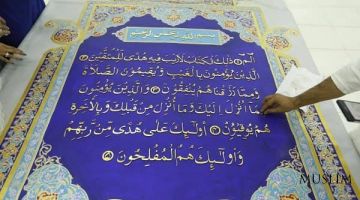 بسم الله الرحمن الرحيم
الٓمٓ ۝ ذَٰلِكَ ٱلْكِتَٰبُ لَا رَيْبَ فِيهِ هُدًى لِّلْمُتَّقِينَ ۝
ٱلَّذِينَ يُؤْمِنُونَ بِٱلْغَيْبِ وَيُقِيمُونَ ٱلصَّلَاةَ
وَمِمَّا رَزَقْنَاهُمْ يُنفِقُونَ ۝ وَٱلَّذِينَ يُؤْمِنُونَ
بِمَآ أُنزِلَ إِلَيْكَ وَمَآ أُنزِلَ مِن قَبْلِكَ وَبِٱلْآخِرَةِ
هُمْ يُوقِنُونَ ۝ أُو۟لَٰٓئِكَ عَلَىٰ هُدًى مِّن رَّبِّهِمْ
وَأُو۟لَٰٓئِكَ هُمُ ٱلْمُفْلِحُونَ ۝